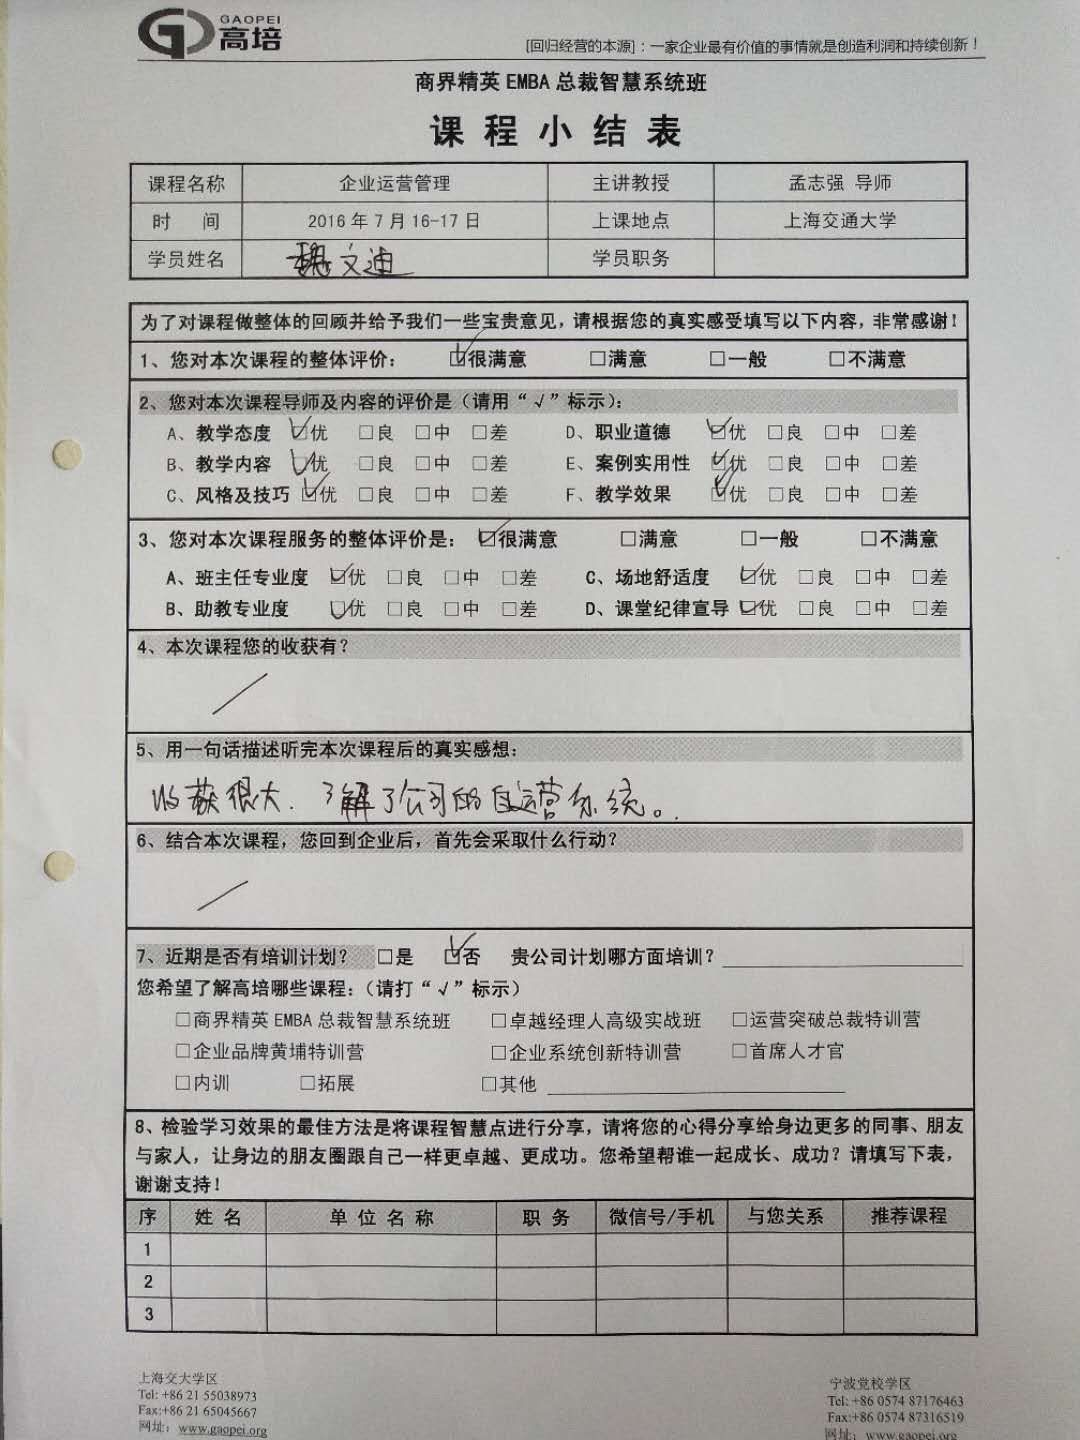 GAOPEI
高培
[回归经营的本源]：一家企业最有价值的事情就是创造利润和持续创新！
商界精英 EMBA 总裁智慧系统班
课程小结表
课程名称 企业运营管理 主讲教授 孟志强 导师
时 间 2016 年 7 月 16-17 日 上课地点 上海交通大学
学员姓名 魏文迪 学员职务
为了对课程做整体的回顾并给予我们一些宝贵意见，请根据您的真实感受填写以下内容，非常感谢！
1、您对本次课程的整体评价： ☑很满意 □满意 □一般 □不满意
2、您对本次课程导师及内容的评价是（请用“√”标示）：
A、教学态度 ☑优 □良 □中 □差 D、职业道德 ☑优 □良 □中 □差
B、教学内容 ☑优 □良 □中 □差 E、案例实用性 ☑优 □良 □中 □差
C、风格及技巧 ☑优 □良 □中 □差 F、教学效果 ☑优 □良 □中 □差
3、您对本次课程服务的整体评价是： ☑很满意 □满意 □一般 □不满意
A、班主任专业度 ☑优 □良 □中 □差 C、场地舒适度 ☑优 □良 □中 □差
B、助教专业度 ☑优 □良 □中 □差 D、课堂纪律宣导 ☑优 □良 □中 □差
4、本次课程您的收获有？
/
5、用一句话描述听完本次课程后的真实感想：
收获很大．了解了公司的自运营系统。
6、结合本次课程，您回到企业后，首先会采取什么行动？
/
7、近期是否有培训计划？ □是 ☑否 贵公司计划哪方面培训？
您希望了解高培哪些课程：（请打“√”标示）
□商界精英 EMBA 总裁智慧系统班 □卓越经理人高级实战班 □运营突破总裁特训营
□企业品牌黄埔特训营 □企业系统创新特训营 □首席人才官
□内训 □拓展 □其他
8、检验学习效果的最佳方法是将课程智慧点进行分享，请将您的心得分享给身边更多的同事、朋友
与家人，让身边的朋友圈跟自己一样更卓越、更成功。您希望帮谁一起成长、成功？请填写下表，
谢谢支持！
序 姓 名 单 位 名 称 职 务 微信号/手机 与您关系 推荐课程
1
2
3
上海交大学区
Tel: +86 21 55038973
Fax:+86 21 65045667
网址：www.gaopei.org
宁波党校学区
Tel: +86 0574 87176463
Fax:+86 0574 87316519
网址：www.gaopei.org